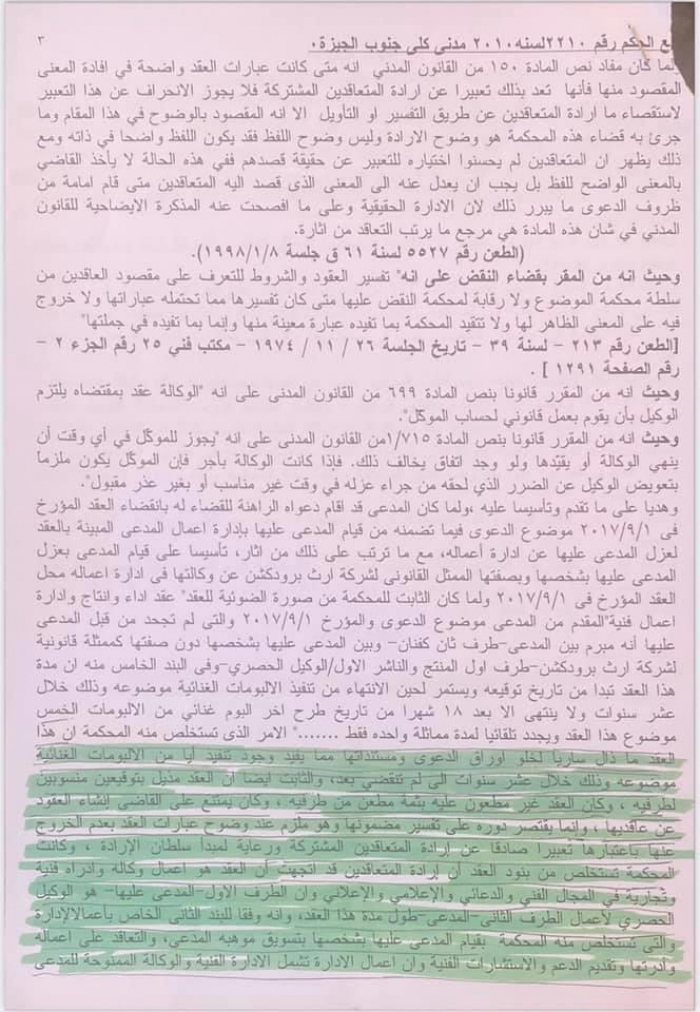 ع الحكم رقم ٢٢١٠لسنه٢٠١٠ مدنى كلى جنوب الجيزة٠ ٣
لما كان مفاد نص المادة ١٥٠ من القانون المدني انه متى كانت عبارات العقد واضحة في افادة المعنى
المقصود منها فأنها تعد بذلك تعبيرا عن ارادة المتعاقدين المشتركة فلا يجوز الانحراف عن هذا التعبير
لاستقصاء ما ارادة المتعاقدين عن طريق التفسير او التأويل الا انه المقصود بالوضوح في هذا المقام وما
جرئ به قضاء هذه المحكمة هو وضوح الارادة وليس وضوح اللفظ فقد يكون اللفظ واضحا في ذاته ومع
ذلك يظهر ان المتعاقدين لم يحسنوا اختياره للتعبير عن حقيقة قصدهم ففي هذه الحالة لا يأخذ القاضي
بالمعنى الواضح للفظ بل يجب ان يعدل عنه الى المعنى الذى قصد اليه المتعاقدين متى قام امامة من
ظروف الدعوى ما يبرر ذلك لان الادارة الحقيقية وعلى ما افصحت عنه المذكرة الايضاحية للقانون
المدني في شان هذه المادة هي مرجع ما يرتب التعاقد من اثارة.
(الطعن رقم ٥٥٢٧ لسنة ٦١ ق جلسة ١٩٩٨/١/٨).
وحيث انه من المقر بقضاء النقض على انه" تفسير العقود والشروط للتعرف على مقصود العاقدين من
سلطة محكمة الموضوع ولا رقابة لمحكمة النقض عليها متى كان تفسيرها مما تحتمله عباراتها ولا خروج
فيه على المعنى الظاهر لها ولا تتقيد المحكمة بما تفيده عبارة معينة منها وإنما بما تفيده في جملتها"
[الطعن رقم ٢١٣ – لسنة ٣٩ – تاريخ الجلسة ٢٦ / ١١ / ١٩٧٤ – مكتب فني ٢٥ رقم الجزء ٢ –
رقم الصفحة ١٢٩١ ] .
وحيث انه من المقرر قانونا بنص المادة ٦٩٩ من القانون المدنى على انه "الوكالة عقد بمقتضاه يلتزم
الوكيل بأن يقوم بعمل قانوني لحساب الموكّل".
وحيث انه من المقرر قانونا بنص المادة ١/٧١٥من القانون المدنى على انه "يجوز للموكّل في أي وقت أن
ينهي الوكالة أو يقيّدها ولو وجد اتفاق يخالف ذلك. فإذا كانت الوكالة بأجر فإن الموكّل يكون ملزماً
بتعويض الوكيل عن الضرر الذي لحقه من جراء عزله في وقت غير مناسب أو بغير عذر مقبول".
وهديا على ما تقدم وتأسيسا عليه ،ولما كان المدعى قد اقام دعواه الراهنة للقضاء له بانقضاء العقد المؤرخ
فى ٢٠١٧/٩/١ موضوع الدعوى فيما تضمنه من قيام المدعى عليها بإدارة اعمال المدعى المبينة بالعقد
لعزل المدعى عليها عن ادارة أعماله، مع ما ترتب على ذلك من اثار، تأسيسا على قيام المدعى بعزل
المدعى عليها بشخصها وبصفتها الممثل القانونى لشركة ارث برودكشن عن وكالتها فى ادارة اعماله محل
العقد المؤرخ فى ٢٠١٧/٩/١ ولما كان الثابت للمحكمة من صورة الضوئية للعقد" عقد اداء وانتاج وادارة
اعمال فنية"المقدم من المدعى موضوع الدعوى والمؤرخ ٢٠١٧/٩/١ والتى لم تجحد من قبل المدعى
عليها أنه مبرم بين المدعى-طرف ثان كفنان- وبين المدعى عليها بشخصها دون صفتها كممثلة قانونية
لشركة ارث برودكشن-طرف اول المنتج والناشر الاول/الوكيل الحصري-وفى البند الخامس منه ان مدة
هذا العقد تبدا من تاريخ توقيعه ويستمر لحين الانتهاء من تنفيذ الالبومات الغنائية موضوعه وذلك خلال
عشر سنوات ولا ينتهى الا بعد ١٨ شهرا من تاريخ طرح اخر البوم غنائي من الالبومات الخمس
موضوع هذا العقد ويجدد تلقائيا لمدة مماثلة واحده فقط ......." الامر الذى تستخلص منه المحكمة ان هذا
العقد ما ذال ساريا لخلو اوراق الدعوى ومستنداتها مما يفيد وجود تنفيد أيا من الالبومات الغنائية
موضوعه وذلك خلال عشر سنوات الى لم تنقضي بعد، والثابت ايضا أن العقد مذيل بتوقيعين منسوبين
لطرفيه ، وكان العقد غير مطعون عليه بثمة مطعن من طرفيه ، وكان يمتنع على القاضى إنشاء العقود
عن عاقديها ، وإنما يقتصر دوره على تفسير مضمونها وهو ملزم عند وضوح عبارات العقد بعدم الخروج
عنها باعتبارها تعبيرا صادقا عن إرادة المتعاقدين المشتركة ورعاية لمبدأ سلطان الإرادة ، وكانت
المحكمة تستخلص من بنود العقد أن إرادة المتعاقدين قد اتجهت أن العقد هو اعمال وكاله وادراه فنية
وتجارية في المجال الفني والدعائي والإعلامي والإعلاني وان الطرف الاول-المدعى عليها- هو الوكيل
الحصري لأعمال الطرف الثانى-المدعى-طول مدة هذا العقد، وانه وفقا للبند الثانى الخاص بأعمالالإدارة
والتى تستخلص منه المحكمة بقيام المدعى عليها بشخصها بتسويق موهبه المدعى، والتعاقد على اعماله
وأدرتها وتقديم الدعم والاستشارات الفنية وان اعمال الادارة تشمل الادارة الفنية والوكالة الممنوحة للمدعى